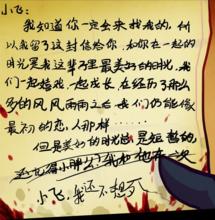 小飞:
我知道你一定会来找我的,所
以我留了这封信给你,和你在一起的
时光是我这辈子里最美好的时光,我
们一起嬉戏,一起成长,在经历了那么
多的风风雨雨之后,我们仍能像
最初的恋人那样……
但是美好的时光总是短暂的,
还记得小时候
小飞,我还不想死